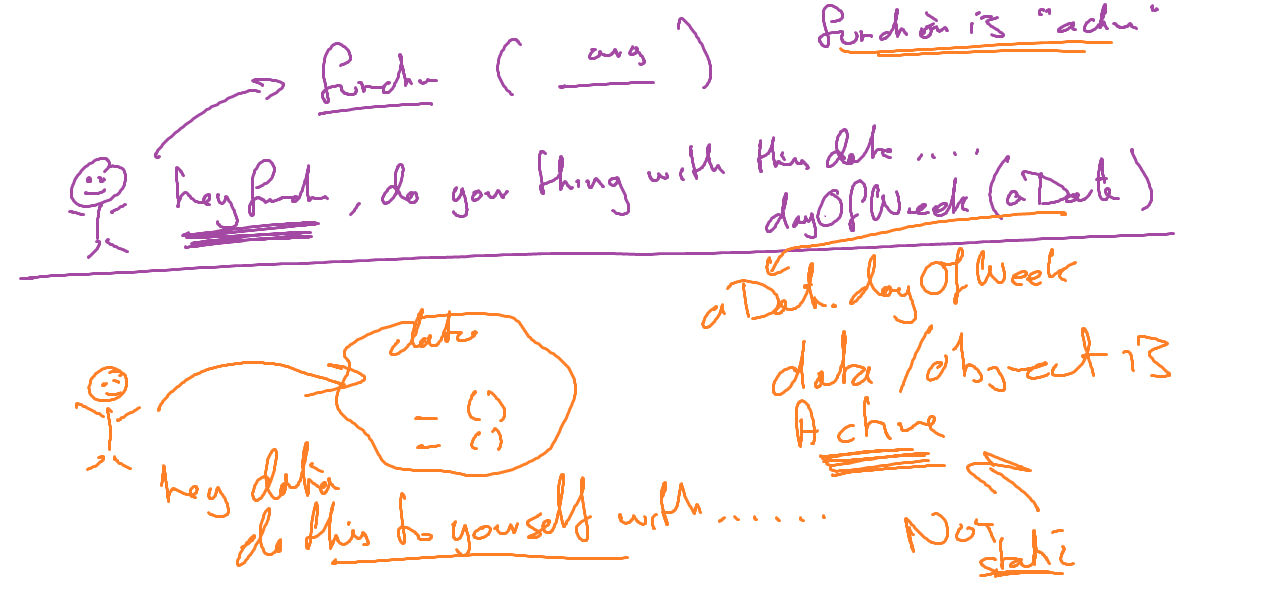 function is "activ"
function ( arg )
hey function, do your thing with this data ....
dayOfWeek (aDate)
aDat.dayOfWeek
data
data / object is
Active
_ ()
_ ()
hey data
do this to yourself with ......
NOT
static